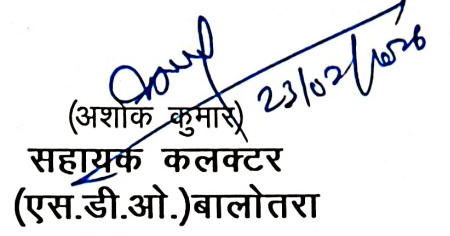 23/02/2026
(अशोक कुमार)
सहायक कलक्टर
(एस.डी.ओ.)बालोतरा